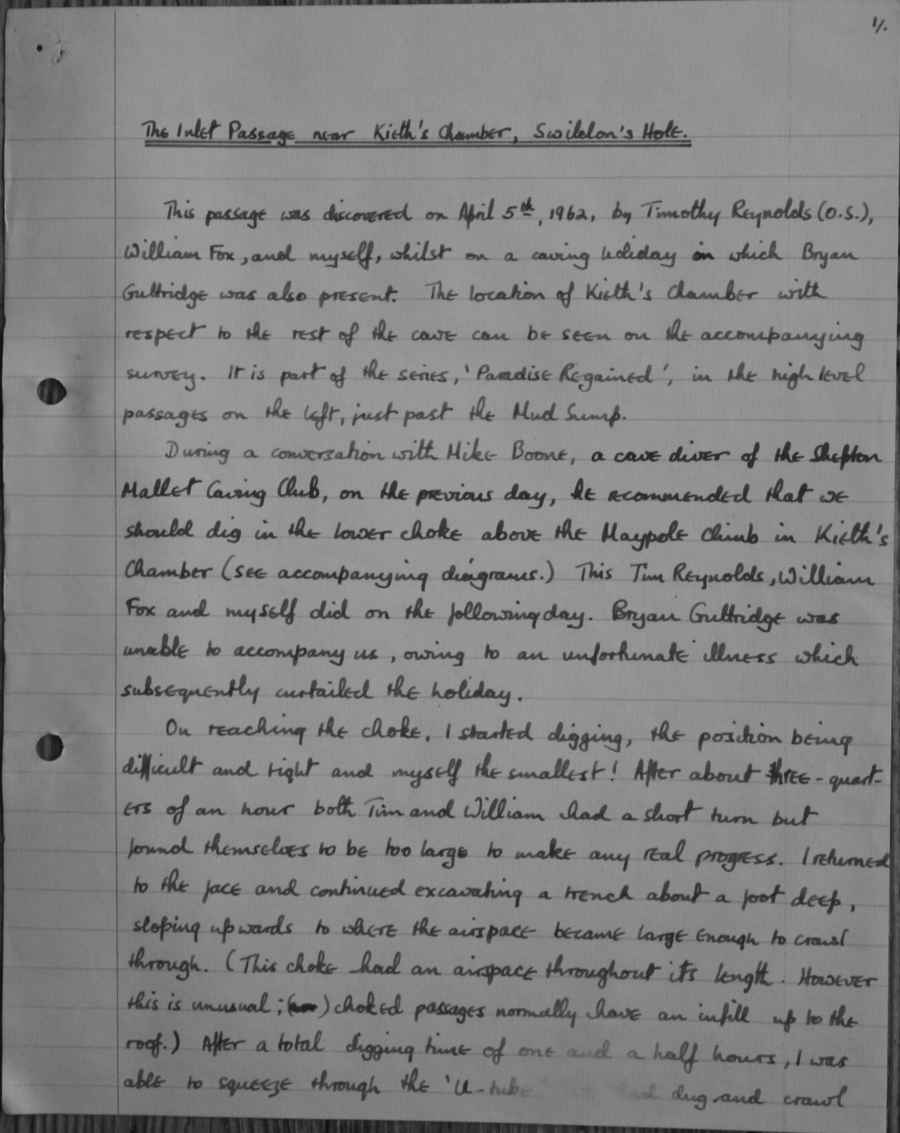 1/.
The Inlet Passage near Kieth's Chamber, Swildon's Hole.
This passage was discovered on April 5th, 1962, by Timothy Reynolds (O.S.),
William Fox, and myself, whilst on a caving holiday in which Bryan
Guttridge was also present. The location of Kieth's Chamber with
respect to the rest of the cave can be seen on the accompanying
survey. It is part of the series, 'Paradise Regained', in the high level
passages on the left, just past the Mud Sump.
During a conversation with Mike Boone, a cave diver of the Shepton
Mallet Caving Club, on the previous day, he recommended that we
should dig in the lower choke above the Maypole Climb in Kieth's
Chamber (see accompanying diagrams.) This Tim Reynolds, William
Fox and myself did on the following day. Bryan Guttridge was
unable to accompany us, owing to an unfortunate illness which
subsequently curtailed the holiday.
On reaching the choke, I started digging, the position being
difficult and tight and myself the smallest! After about three-quart-
ers of an hour both Tim and William had a short turn but
found themselves to be too large to make any real progress. I returned
to the face and continued excavating a trench about a foot deep,
sloping upwards to where the airspace became large enough to crawl
through. (This choke had an airspace throughout its length. However
this is unusual; choked passages normally have an infill up to the
roof.) After a total digging time of one and a half hours, I was
able to squeeze through the 'U-tube dug and crawl